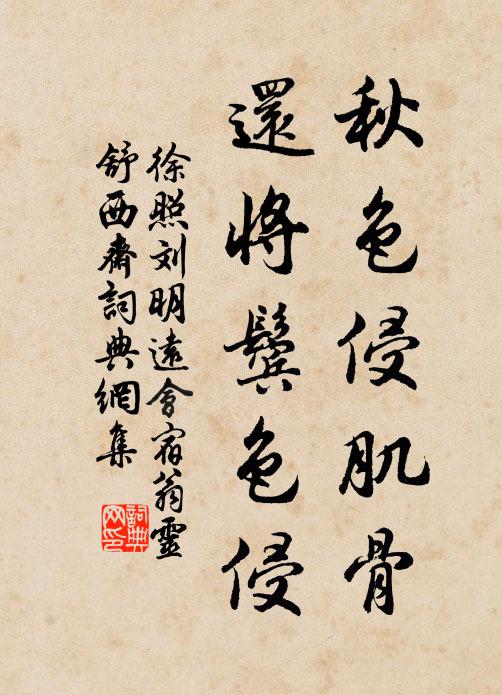 秋色侵肌骨
還将鬢色侵
徐照刘明遠會宿翁靈
舒西齋詞典網集
詞典网印